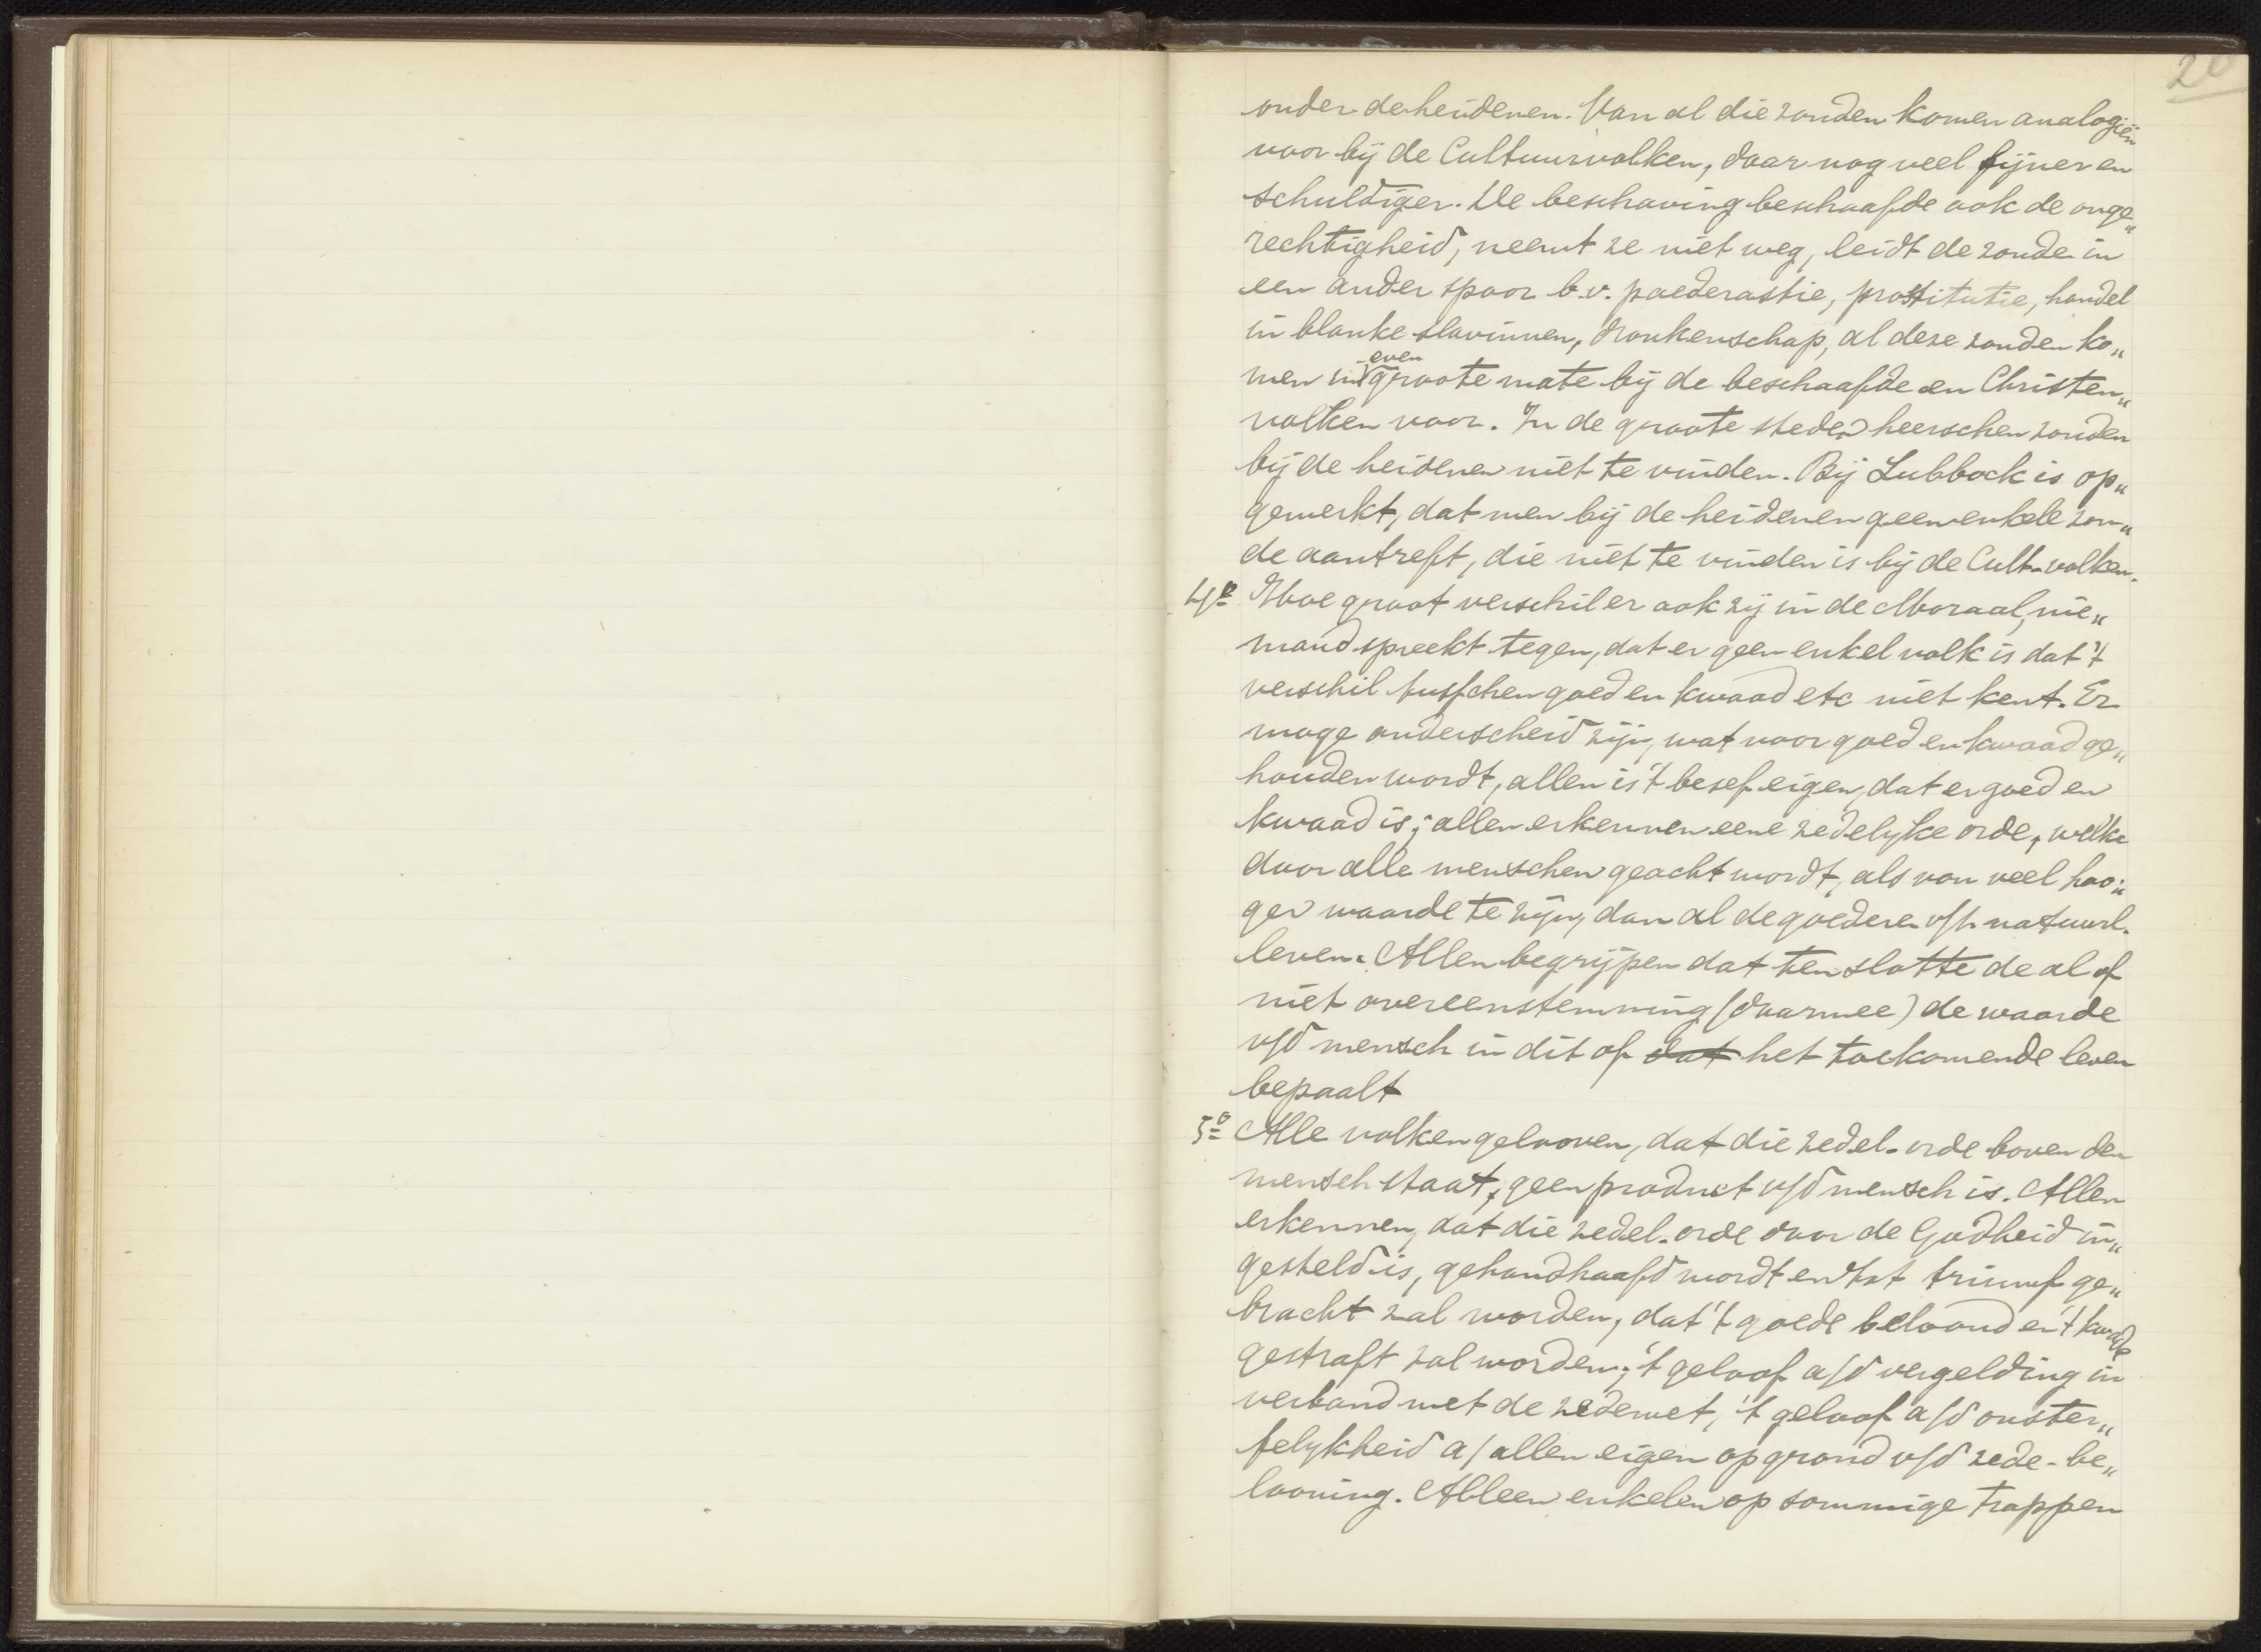 20
onder de heidenen. Van al die zonden komen analogiën
voor bij de Cultuurvolken, daar nog veel fijner en
schuldiger. De beschaving beschaafde ook de onge„
rechtigheid, neemt ze niet weg, leidt de zonde in
een ander spoor b.v. paederastie, prostitutie, handel
in blanke slavinnen, dronkenschap, al deze zonden ko„
men in even groote mate bij de beschaafde en Christen„
volken voor. In de groote steden heerschen zonden
bij de heidenen niet te vinden. Bij Lubbock is op„
gemerkt, dat men bij de heidenen geen enkele zon„
de aantreft, die niet te vinden is bij de Cult. volken.
4o Hoe groot verschil er ook zij in de Moraal, nie„
mand spreekt tegen, dat er geen enkel volk is dat 't
verschil tusschen goed en kwaad etc niet kent. Er
moge onderscheid zijn, wat voor goed en kwaad ge„
houden wordt, allen is 't besef eigen, dat er goed en
kwaad is; allen erkennen eene zedelyke orde, welke
door alle menschen geacht wordt, als van veel hoo„
ger waarde te zijn, dan al de goederen v/h natuurl.
leven. Allen begrijpen dat ten slotte de al of
niet overeenstemming (daarmee) de waarde
v/d mensch in dit of dat het toekomende leven
bepaalt
5o Alle volken gelooven, dat die zedel. orde boven den
mensch staat, geen product v/d mensch is. Allen
erkennen, dat die zedel. orde door de Godheid in„
gesteld is, gehandhaafd wordt en tot triumf ge„
bracht zal worden, dat 't goede beloond en 't kwade
gestraft zal worden; 't geloof a/d vergelding in
verband met de zedewet, 't geloof a/d onster„
felykheid a/ allen eigen op grond v/d zede-be„
looning. Alleen enkelen op sommige trappen